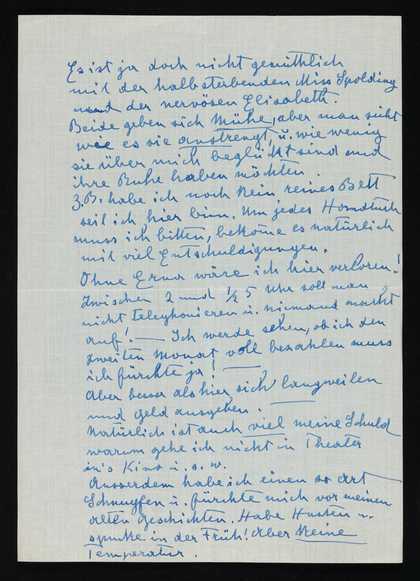 Es ist ja doch nicht gemüthlich
mit der halbsterbenden Miss Spolding
und der nervösen Elisabeth.
Beide geben sich Mühe, aber man sieht
wie es sie anstrengt u. wie wenig
sie über mich beglückt sind und
ihre Ruhe haben möchten.
Z.B. habe ich noch kein reines Bett
seil ich hier binn. Um jedes Handtuch
muss ich bitten, bekome es natürlich
mit viel Entschuldigungen.
Ohne Erna wäre ich hier verloren!
Zwischen 2 und ½ 5 Uhr soll man
nicht telephonieren u. niemand macht
auf! — Ich werde sehen, ob ich den
zweiten Monat voll bezahlen muss
ich fürchte ja! —
Aber besser als hier sich langweilen
und Geld ausgeben. —
Natürlich ist auch viel meine Schuld
warum gehe ich nicht in Theater
in's Kino u. s. w.
Ausserdem habe ich einen so art
Schnupfen u. fürchte mich vor meinen
alten Geschichten. Habe Husten u.
spucke in der Früh! Aber keine
Temperatur.